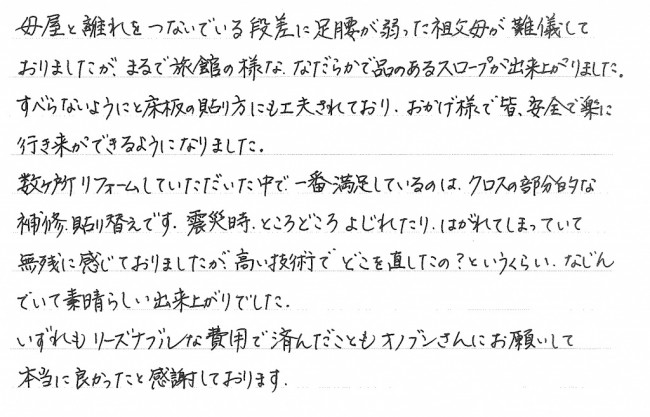 母屋と離れをつないでいる段差に足腰が弱った祖父母が難儀して
おりましたが、まるで旅館の様な、なだらかで品のあるスロープが出来上がりました。
すべらないようにと床板の貼り方にも工夫されており、おかげ様で皆、安全で楽に
行き来ができるようになりました。
数ヶ所リフォームしていただいた中で、一番満足しているのは、クロスの部分的な
補修、貼り替えです。震災時、ところどころよじれたり、はがれてしまっていて
無残に感じておりましたが、高い技術でどこを直したの?というくらい、なじん
でいて素晴らしい出来上がりでした。
いずれもリーズナブルな費用で済んだこともオノブンさんにお願いして
本当に良かったと感謝しております。